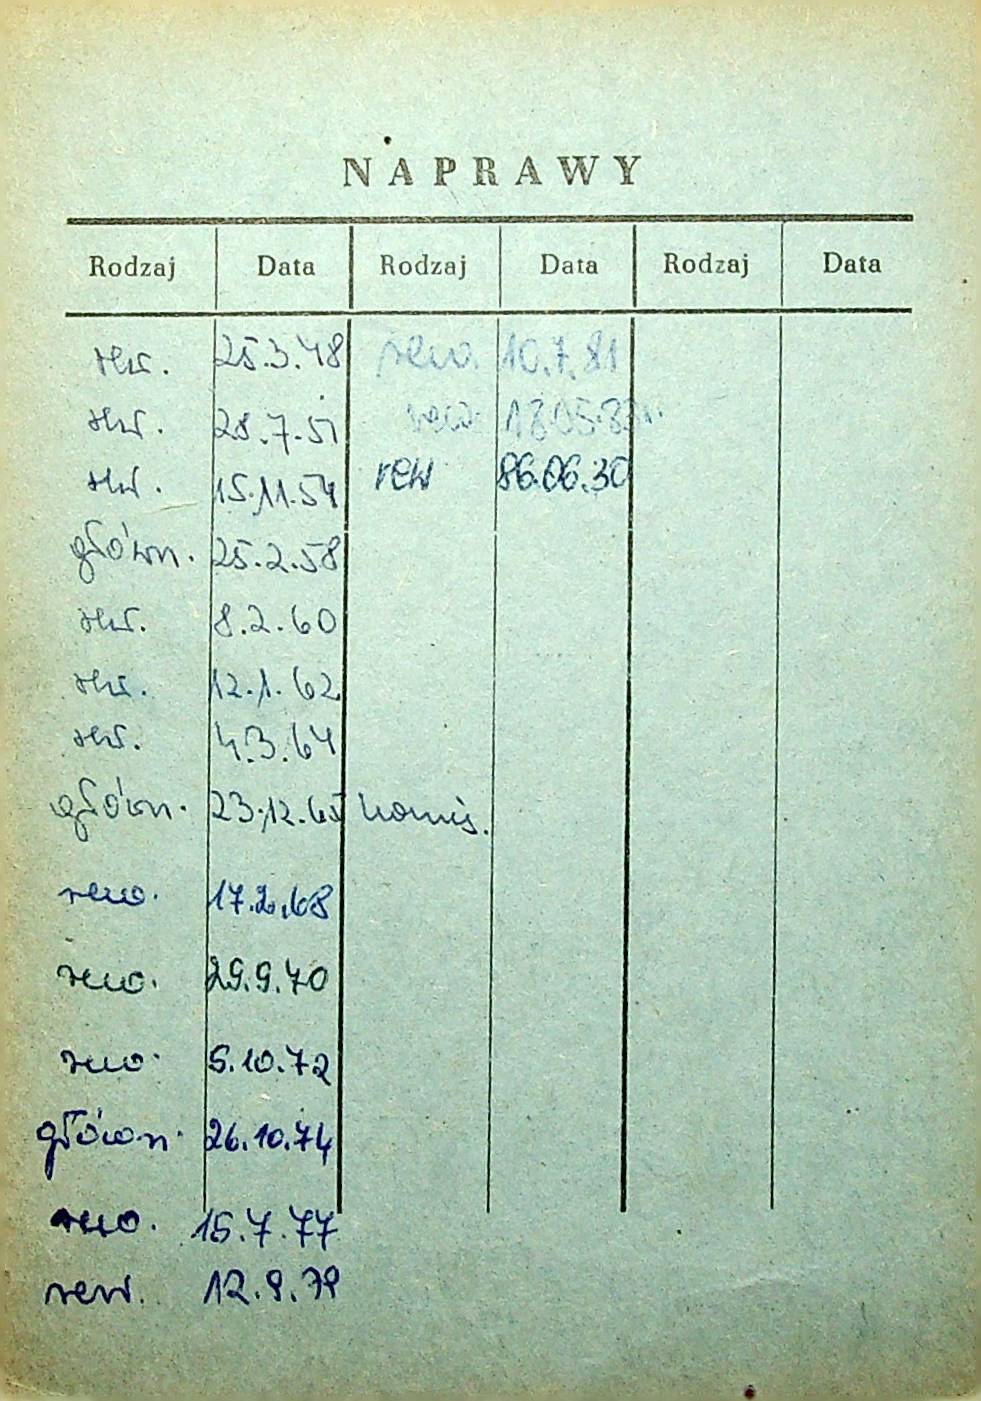 NAPRAWY
Rodzaj Data Rodzaj Data Rodzaj Data
rew. 25.3.48 rew. 10.7.81
rew. 28.7.51 rew. 18.05.83
rew. 15.11.54 rew 86.06.30
główn. 25.2.58
rew. 8.2.60
rew. 12.1.62
rew. 4.3.64
główn. 23.12.65 komis.
rew. 17.2.68
rew. 29.9.70
rew. 5.10.72
główn. 26.10.74
rew. 15.7.77
rew. 12.9.79